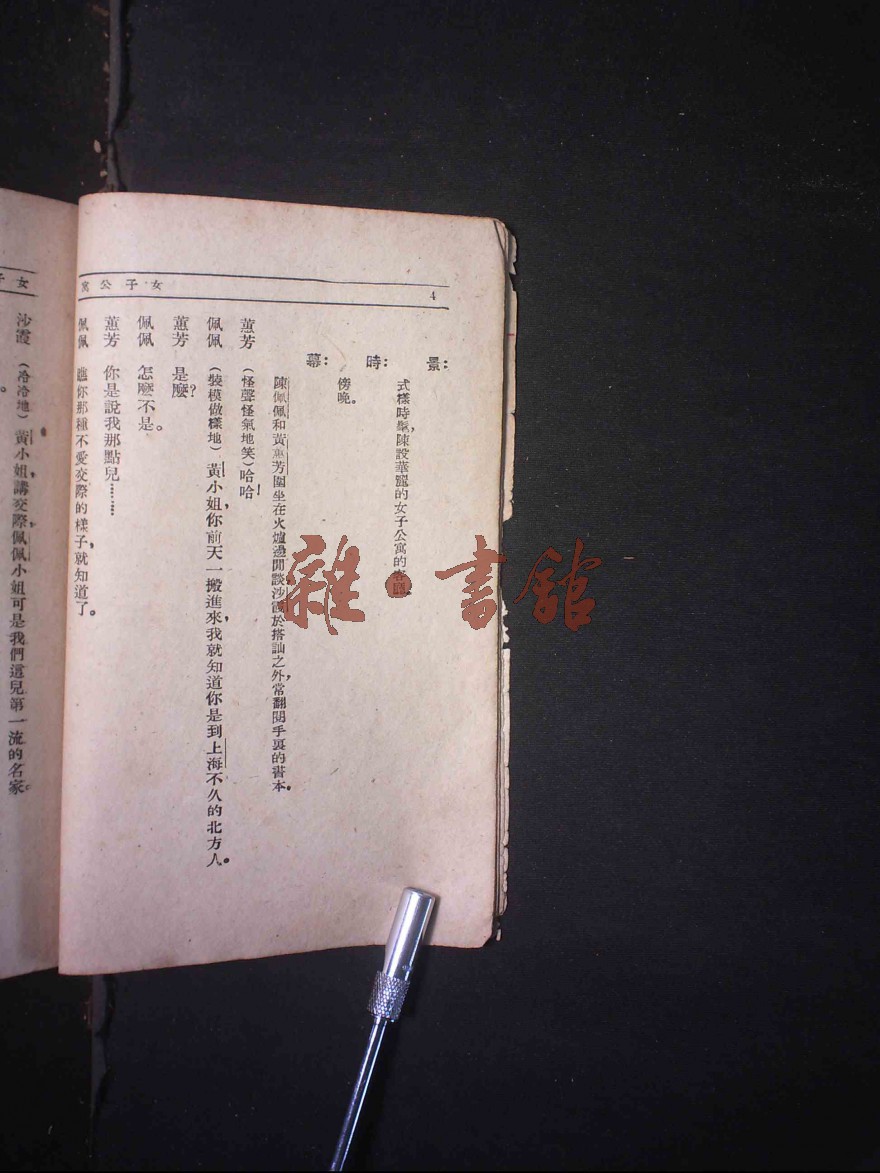 女子公寓
4
景：
式樣時髦，陳設華麗的女子公寓的客廳。
時：
傍晚。
幕：
陳佩佩和黃薰芳圍坐在火爐邊閒談，沙霞於搭訕之外，常翻閱手裏的書本。
薰芳 （怪聲怪氣地笑）哈哈！
佩佩 （裝模做樣地）黃小姐，你前天一搬進來，我就知道你是到上海不久的北方人。
薰芳 是麼？
佩佩 怎麼不是。
薰芳 你是說我那點兒……
佩佩 瞧你那種不愛交際的樣子，就知道了。
沙霞 （冷冷地）黃小姐，講交際，佩佩小姐可是我們這兒第一流的名家。
雜·書館